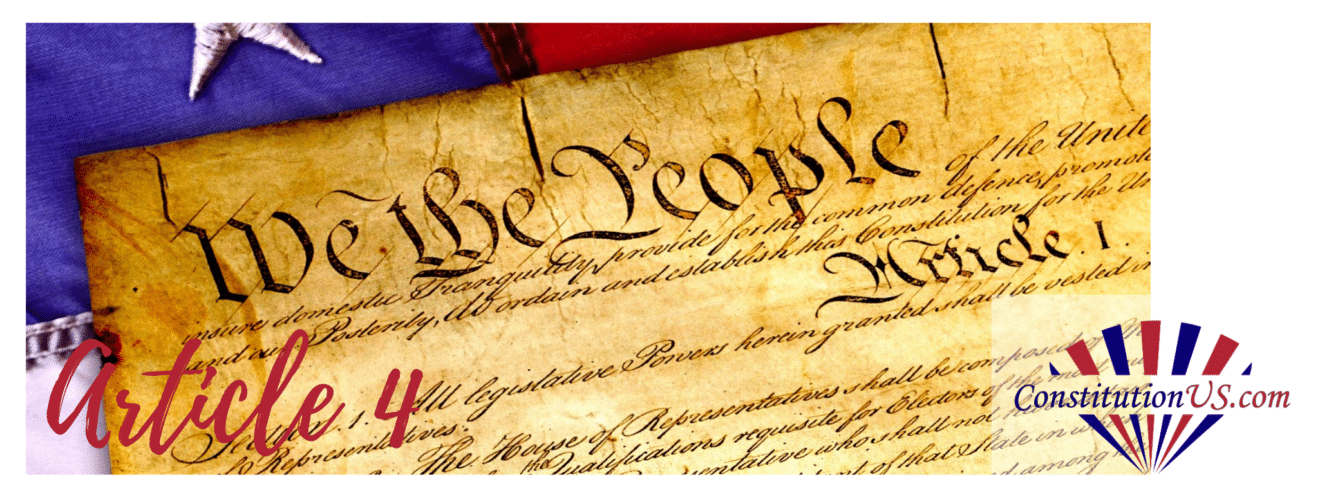 We the People of the Unite
insure domestic Tranquility, provide for the common defence, promote
and our Posterity, do ordain and establish this Constitution for the Un
Article. I.
Section. 1. All legislative Powers herein granted shall be vested in
Representatives.
The House of Representatives shall be composed of
the Qualifications requisite for Electors of the most
who shall not
of that State in
among
Article 4
ConstitutionUS.com